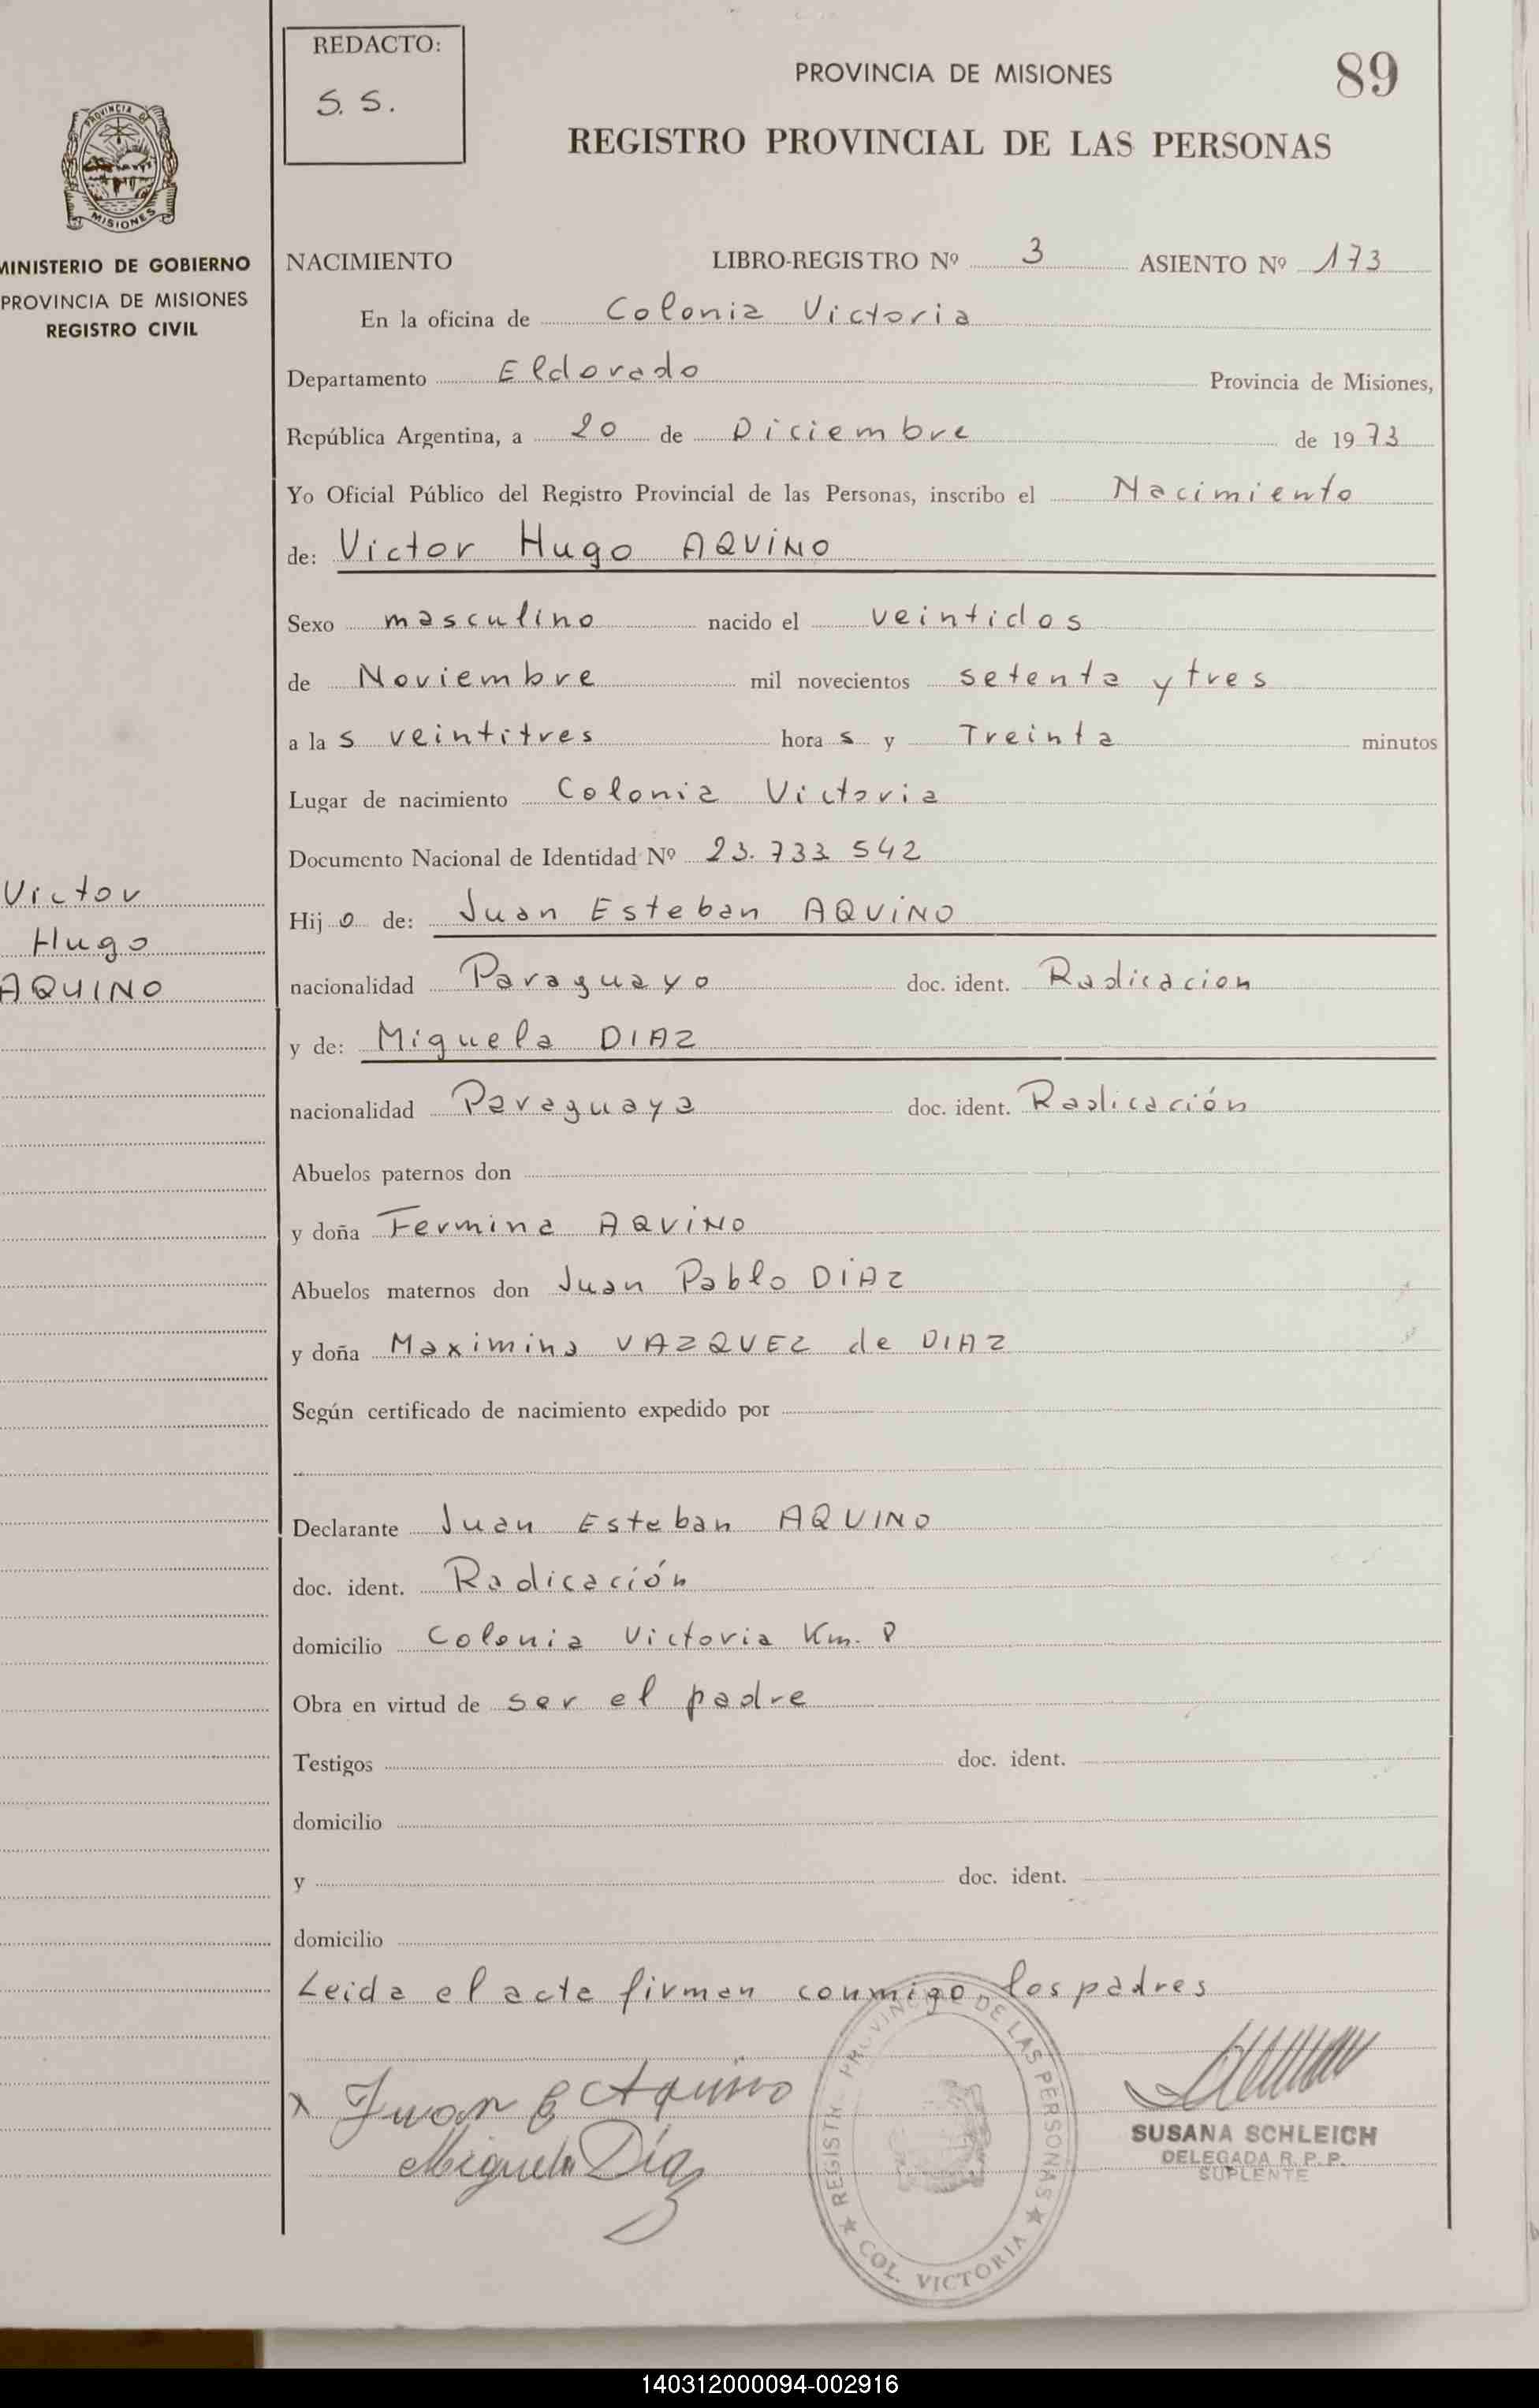 REDACTO:
S. S.
PROVINCIA DE MISIONES
89
REGISTRO PROVINCIAL DE LAS PERSONAS
PROVINCIA DE
MISIONES
MINISTERIO DE GOBIERNO
PROVINCIA DE MISIONES
REGISTRO CIVIL
Victor
Hugo
AQUINO
NACIMIENTO LIBRO-REGISTRO Nº 3 ASIENTO Nº 173
En la oficina de Colonia Victoria
Departamento Eldorado Provincia de Misiones,
República Argentina, a 20 de Diciembre de 1973
Yo Oficial Público del Registro Provincial de las Personas, inscribo el Nacimiento
de: Victor Hugo AQUINO
Sexo masculino nacido el veintidos
de Noviembre mil novecientos setenta y tres
a las veintitres horas y Treinta minutos
Lugar de nacimiento Colonia Victoria
Documento Nacional de Identidad Nº 23.733 542
Hijo de: Juan Esteban AQUINO
nacionalidad Paraguayo doc. ident. Radicacion
y de: Miguela DIAZ
nacionalidad Paraguaya doc. ident. Radicación
Abuelos paternos don
y doña Fermina AQUINO
Abuelos maternos don Juan Pablo DIAZ
y doña Maximina VAZQUEZ de DIAZ
Según certificado de nacimiento expedido por
Declarante Juan Esteban AQUINO
doc. ident. Radicación
domicilio Colonia Victoria Km. 8
Obra en virtud de ser el padre
Testigos doc. ident.
domicilio
y doc. ident.
domicilio
Leida el acta firman conmigo los padres
x Juan E Aquino
Miguela Díaz
REGISTRO PROVINCIAL DE LAS PERSONAS
COL. VICTORIA
SUSANA SCHLEICH
DELEGADA R. P. P.
SUPLENTE
140312000094-002916